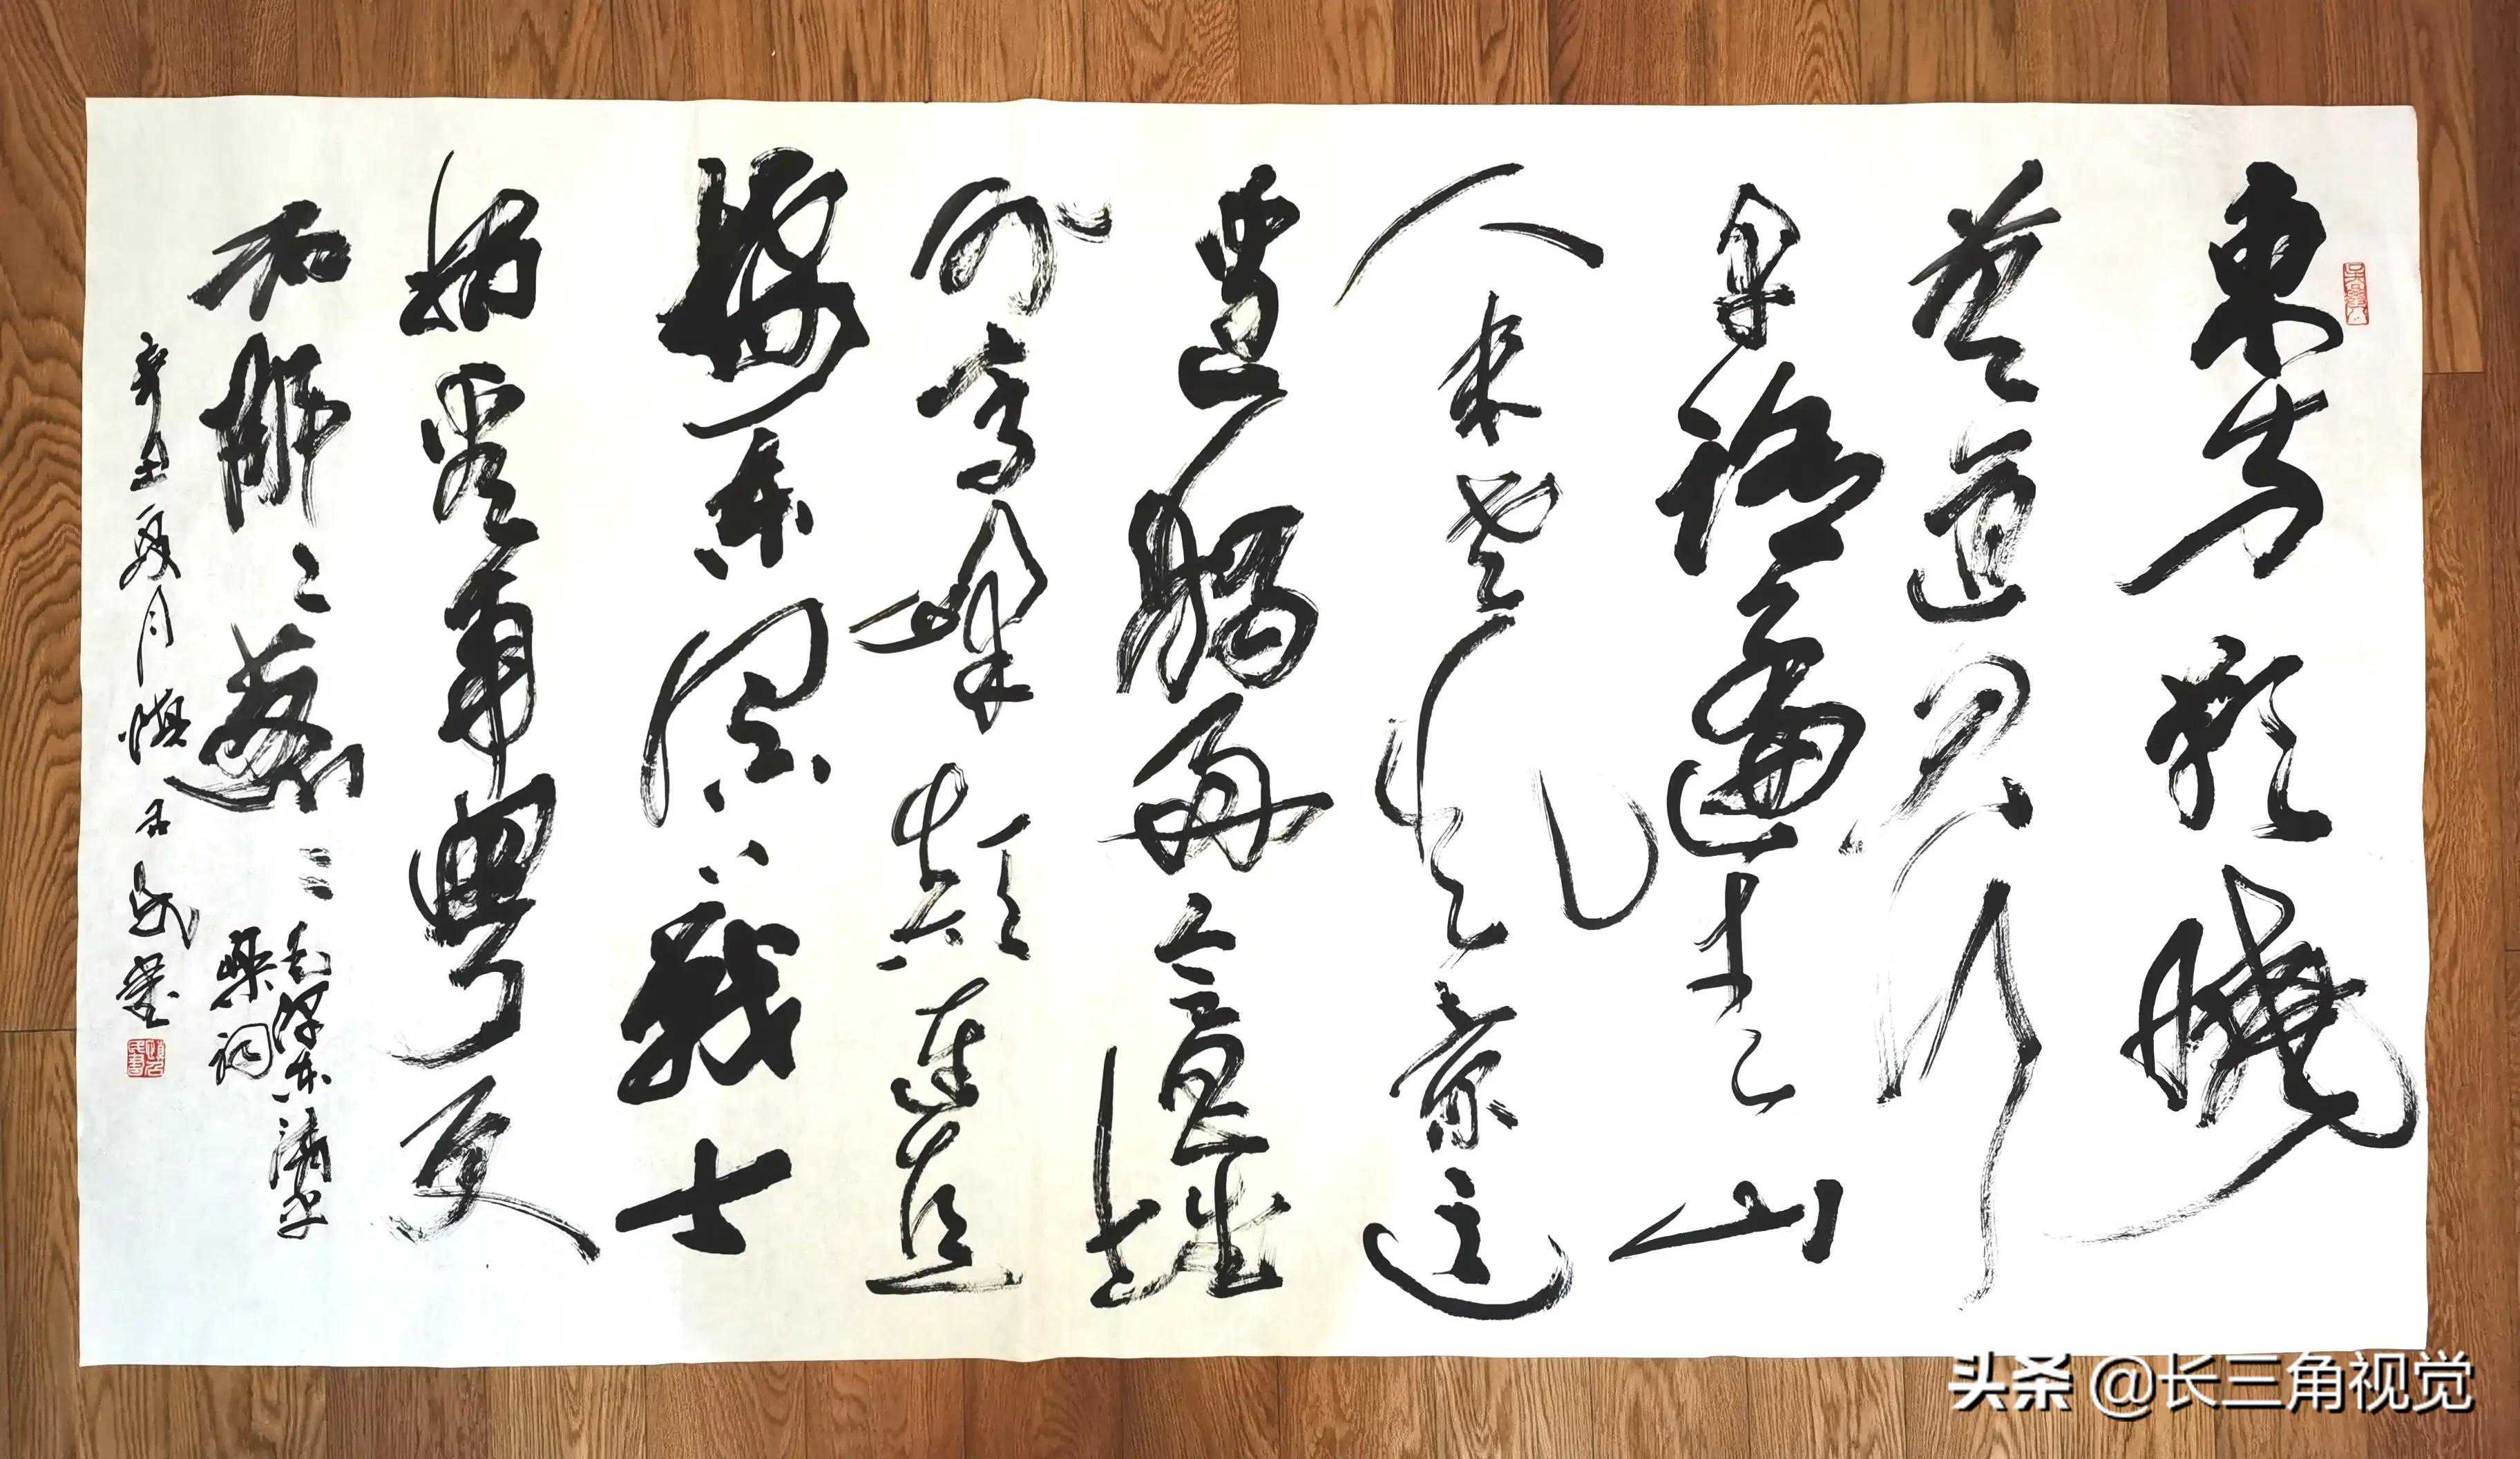 東方欲曉
莫道君行
早踏遍青山
人未老風景這
邊獨好會昌城
外高峰顛連直
接東溟戰士
指看南粵更
加郁〻葱〻 毛泽东清平
樂词
辛丑夏月
头条 @长三角视觉